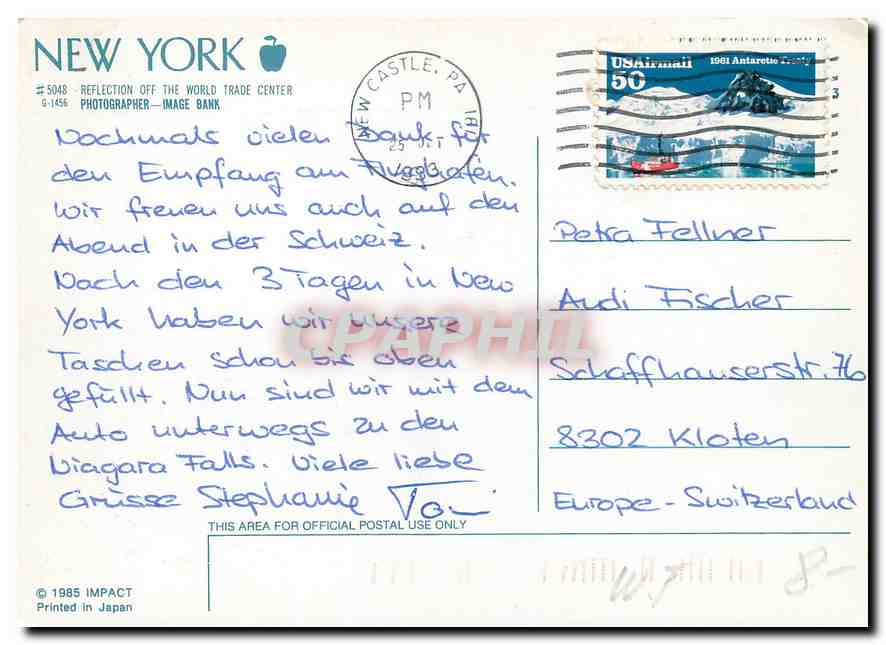 NEW YORK
#5048 - REFLECTION OFF THE WORLD TRADE CENTER
G-1456 PHOTOGRAPHER—IMAGE BANK
Nochmals vielen Dank für
den Empfang am Flughafen.
Wir freuen uns auch auf den
Abend in der Schweiz.
Nach den 3 Tagen in New
York haben wir unsere
Taschen schon bis oben
gefüllt. Nun sind wir mit dem
Auto unterwegs zu den
Niagara Falls. Viele liebe
Grüsse Stephanie
NEW CASTLE, PA
PM
25
USAirmail
50
1961 Antarctic Treaty
Petra Fellner
Andi Fischer
Schaffhauserstr. 76
8302 Kloten
Europe - Switzerland
CPAPHIL
THIS AREA FOR OFFICIAL POSTAL USE ONLY
© 1985 IMPACT
Printed in Japan
8.-